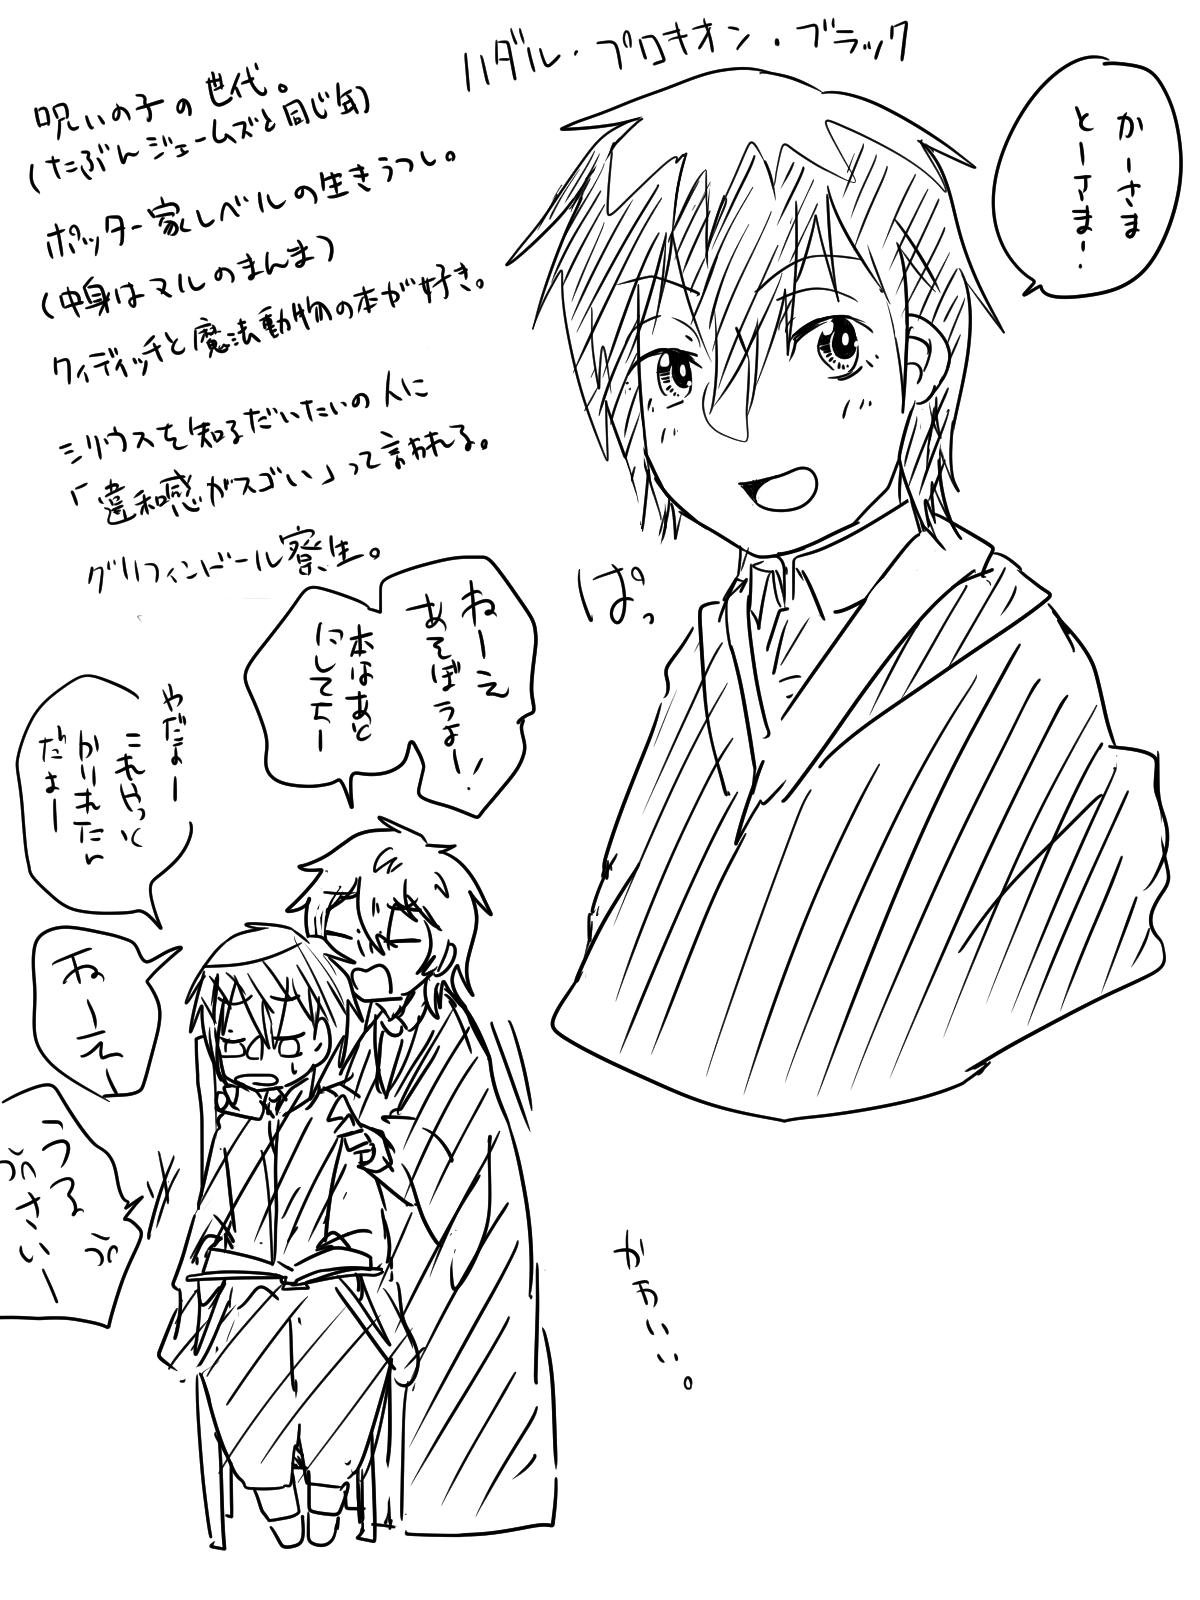 ハダル・プロキオン・ブラック
呪いの子の世代。
(たぶんジェームズと同じ年)
ポッター家レベルの生きうつし。
(中身はマルのまんま)
クィディッチと魔法動物の本が好き。
シリウスを知るだいたいの人に
「違和感がスゴい」って言われる。
グリフィンドール寮生。
かーさま
とーさまー
ぱっ
ねーえ
あそぼうよー!
本はあと
にしてちー
やだよー
これやっと
かりれたん
だよー
ねーえー
うる
さいー
かわいい。